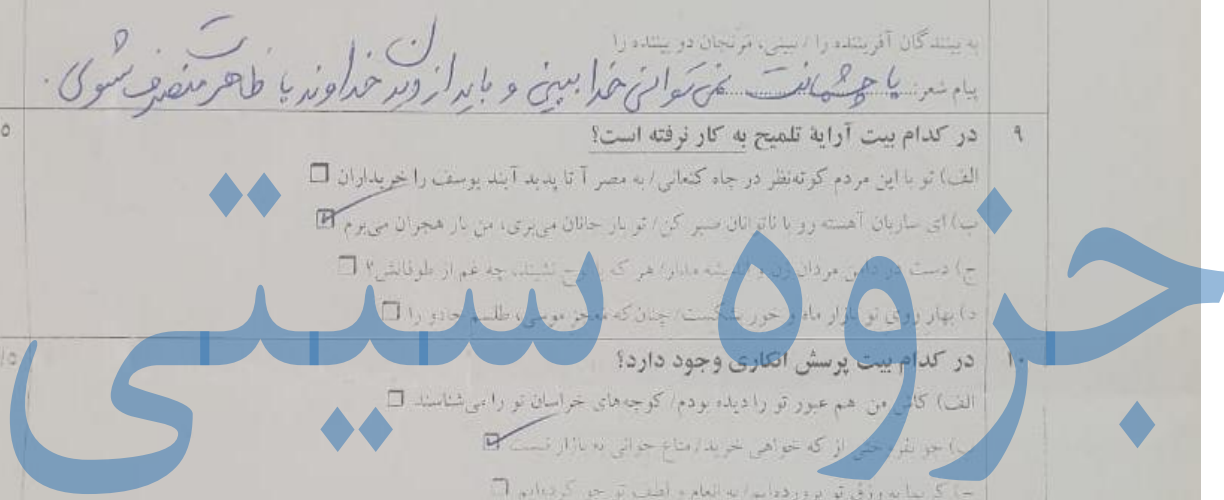 به بینندگان آفریننده را / نبینی، مرنجان دو بیننده را
پیام شعر: با چشمانت نمی‌توانی خدا ببینی و باید از دیدن خداوند با ظاهر منصرف شوی.
۹ در کدام بیت آرایهٔ تلمیح به کار نرفته است؟ ۵
الف) تو با این مردم کوته‌نظر در چاه کنعانی/ به مصر آ تا پدید آیند یوسف را خریداران
ب) ای ساربان آهسته رو با ناتوانان صبر کن/ تو بار جانان می‌بری، من بار هجران می‌برم
ج) دست در دامن مردان زن و اندیشه مدار/ هر که با نوح نشیند، چه غم از طوفانش؟
د) بهار روی تو بازار ماه و خور بشکست/ چنان‌که معجز موسی، طلسم جادو را
۱۰ در کدام بیت پرسش انکاری وجود دارد؟ /۵
الف) کاش من هم عبور تو را دیده بودم/ کوچه‌های خراسان تو را می‌شناسند
ب) چو بفروختی از که خواهی خرید/ متاع جوانی به بازار نیست
ج) کریما به رزق تو پرورده‌ایم/ به انعام و لطف تو خو کرده‌ایم
جزوه سیتی